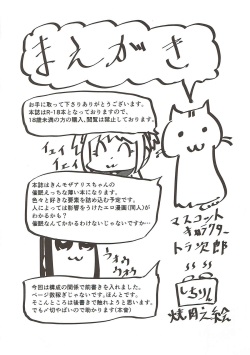 まえがき
お手に取って下さりありがとうございます。
本誌はR-18本となっておりますので、
18歳未満の方の購入、閲覧は禁止しております。
イェイ
イェイ
本誌はきんモザアリスちゃんの
催眠えっちな薄い本になります。
色々と好きな要素を詰め込む予定です。
人によっては影響をうけてエロ漫画(同人)が
わかるかも?
催眠なんてかかるわけないじゃないですか…
ウオオ
ウオオ
マスコット
キャラクター
トラ次郎
今回は構成の関係で前書きを入れました。
ページ数稼ぎじゃないです。ほんとです。
そこんところは後書きで触れようと思います。
でも〆切やばいので助かります(本音)
しちりん